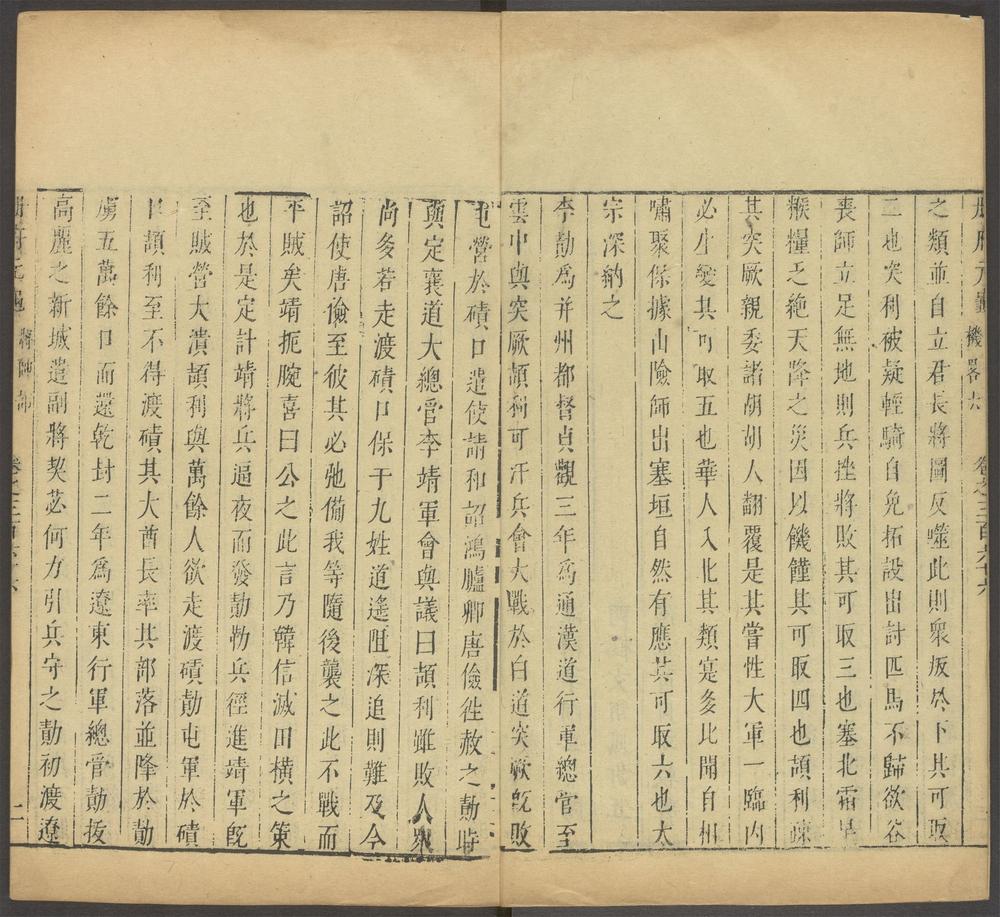 册府元龜機畧六　卷之三百六十六
之類並自立君長將圖反噬此則衆叛於下其可取
二也突利破疑輕騎自免拓設出討匹馬不歸欲谷
喪師立足無地則兵挫將敗其可取三也塞北霜旱
糇糧乏絶天降之災因以饑饉其可取四也頡利疎
其突厥親委諸胡胡人翻覆是其嘗性大軍一臨内
必生變其可取五也華人入北其類寔多比聞自相
嘯聚保據山險師出塞垣自然有應其可取六也太
宗深納之
李勣爲并州都督貞觀三年爲通漢道行軍總官至
雲中與突厥頡利可汗兵會大戰於白道突厥旣敗
屯營於磧口遣使請和詔鴻臚卿唐儉往赦之勣時
與定襄道大總官李靖軍會與議曰頡利雖敗人衆
尚多若走渡磧口保于九姓道遙阻深追則難及今
詔使唐儉至彼其必弛備我等隨後襲之此不戰而
平賊矣靖扼腕喜曰公之此言乃韓信滅田橫之策
也於是定計靖將兵逼夜而發勣勒兵徑進靖軍旣
至賊營大潰頡利與萬餘人欲走渡磧勣屯軍於磧
口頡利至不得渡磧其大酋長率其部落並降於勣
虜五萬餘口而還乾封二年爲遼東行軍總管勣拔
高麗之新城遣副將契苾何力引兵守之勣初渡遼
册府元龜　將帥部　卷之三百六十六　二